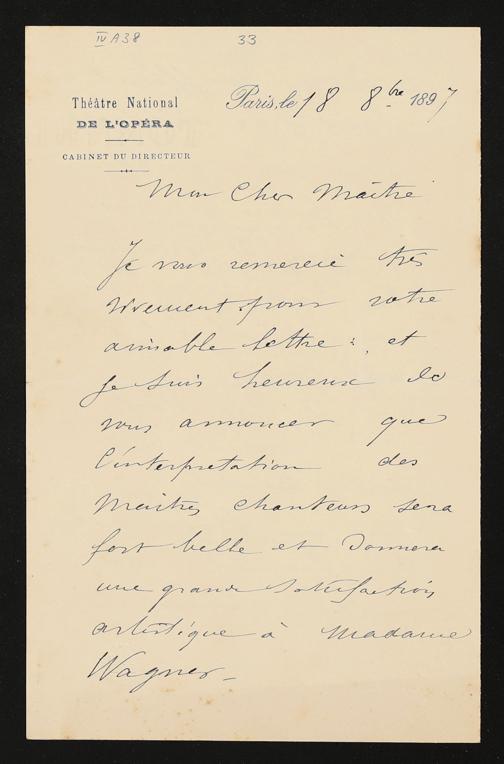 IV A38
33
Théâtre National
DE L'OPÉRA
CABINET DU DIRECTEUR
Paris, le 18 8bre 1897
Mon Cher Maître
Je vous remercie très
vivement pour votre
aimable lettre ; et
je suis heureux de
vous annoncer que
l'interpretation des
Maitres chanteurs sera
fort belle et donnera
une grande satisfaction
artistique à Madame
Wagner_